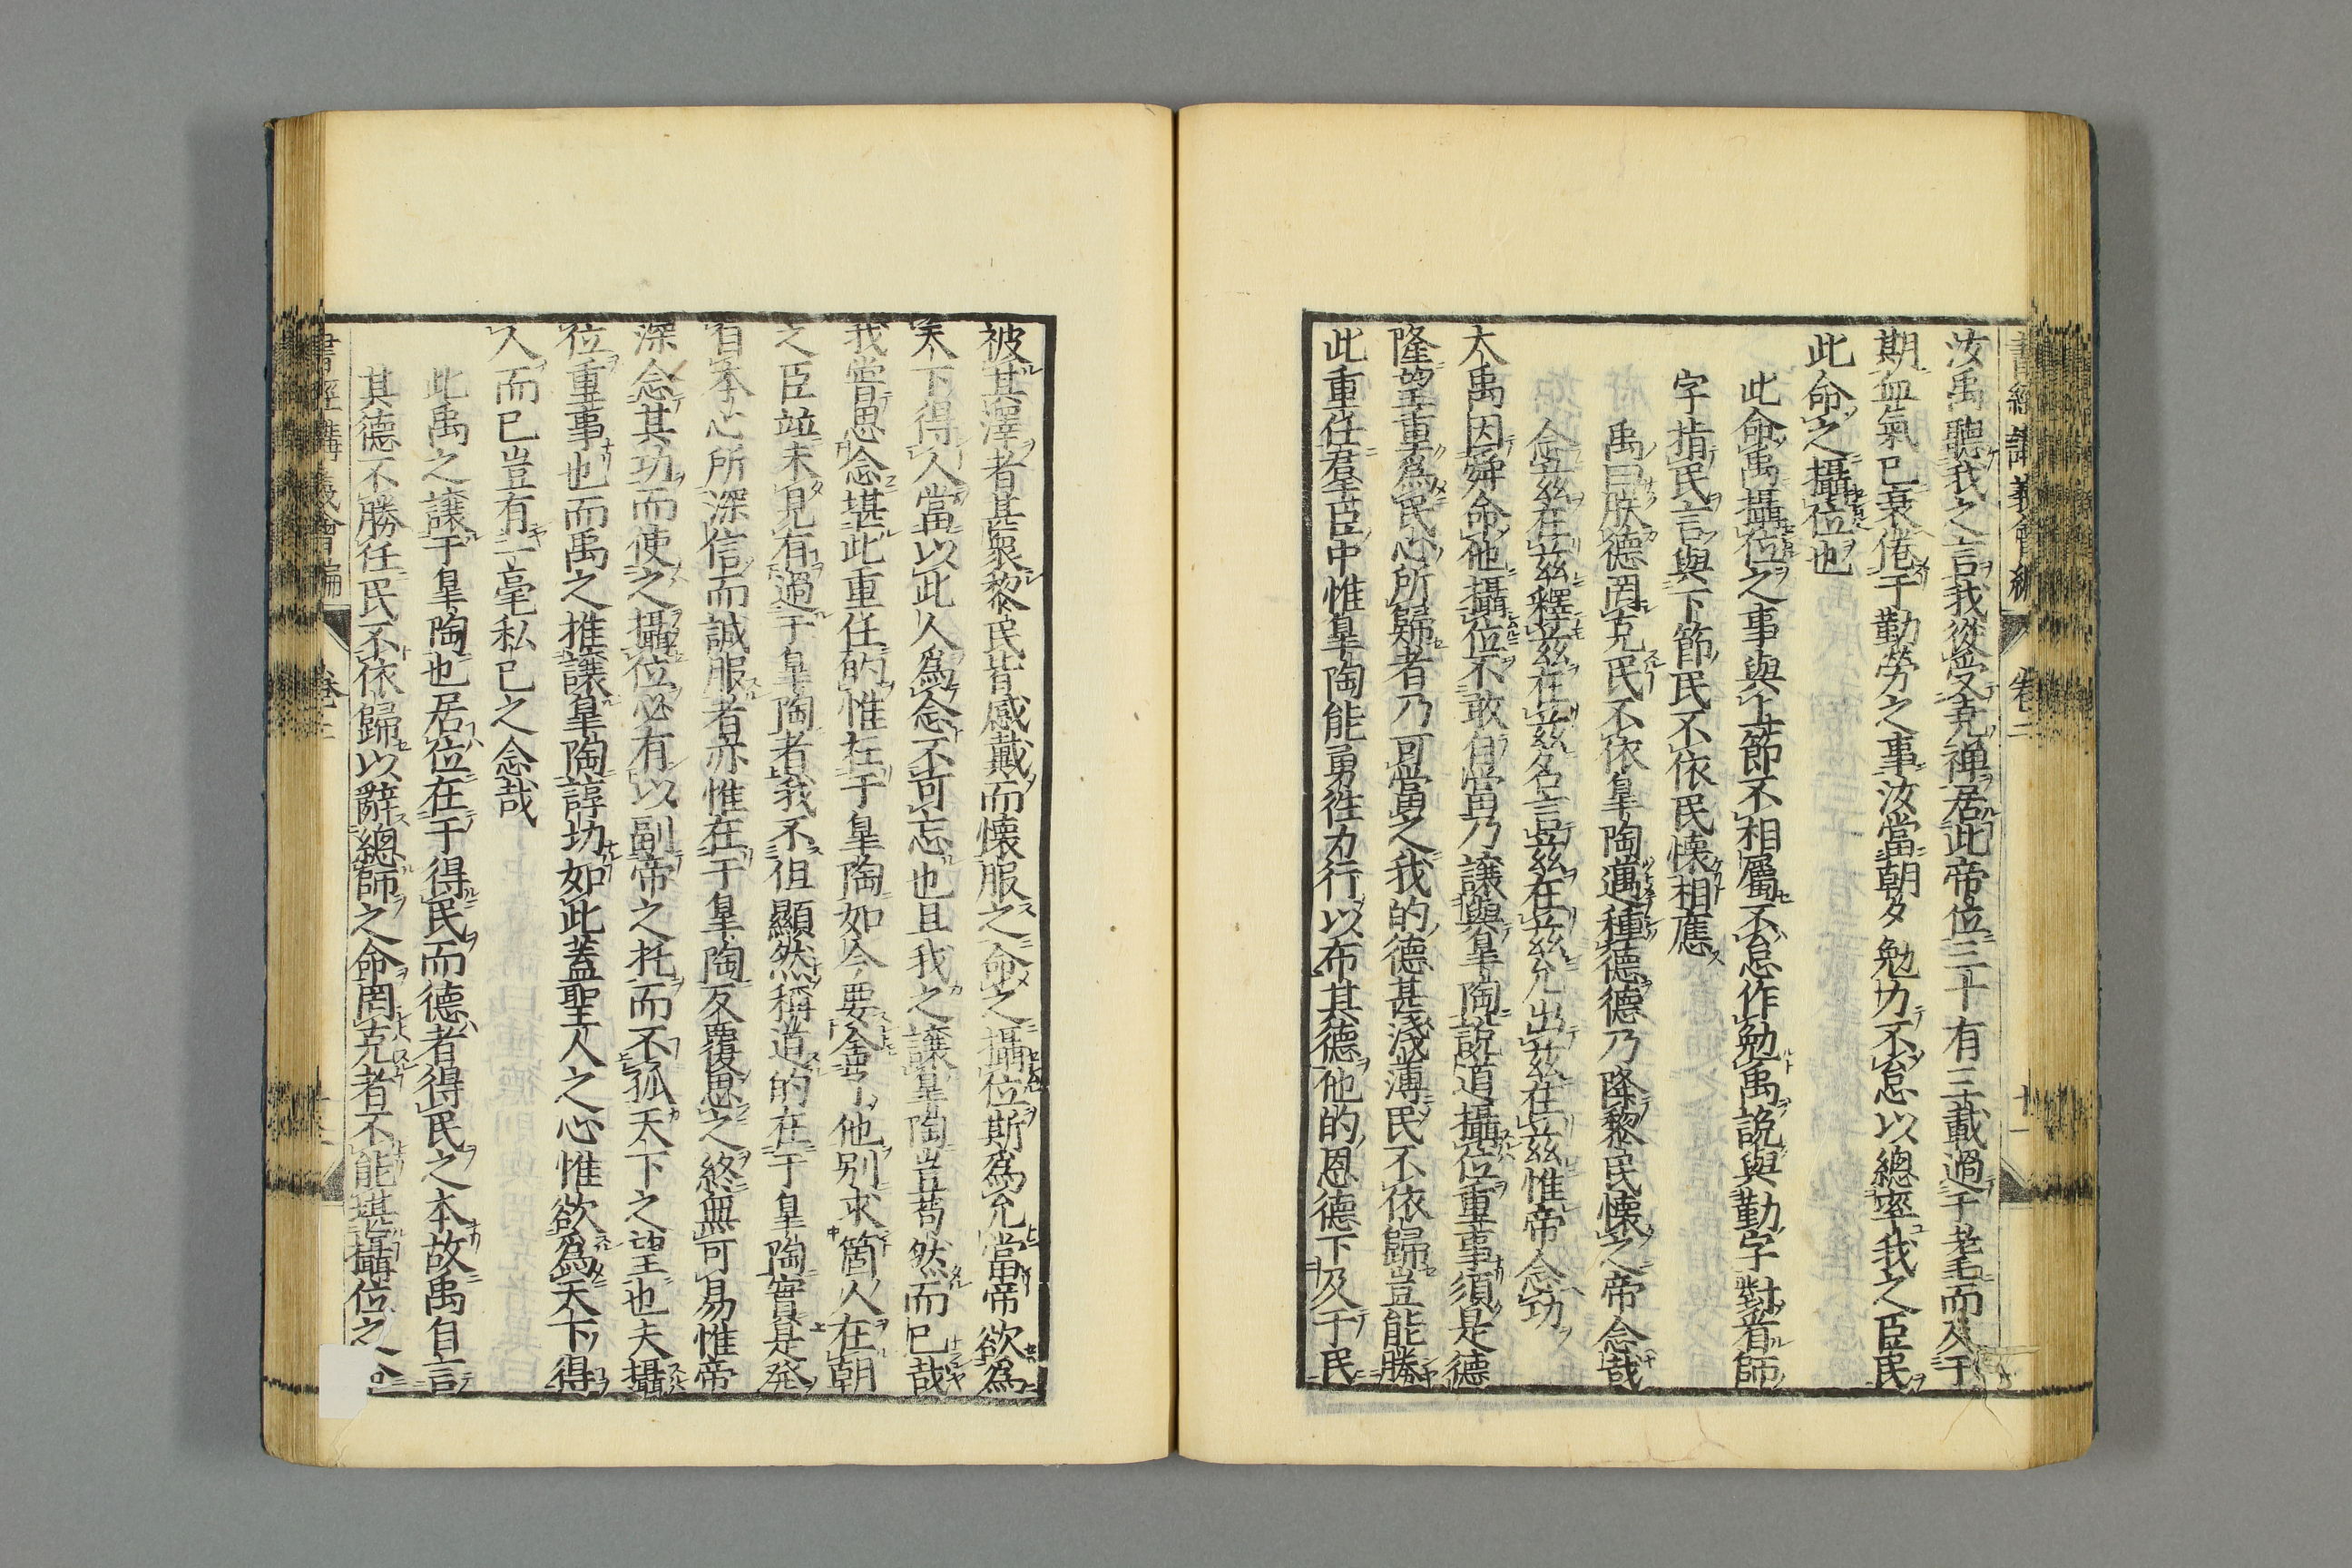 書經講義會編 卷二 十一
汝禹聽我之言我從受堯禪居此帝位三十有三載過于耄而及于
期血氣已衰倦于勤勞之事汝當朝夕勉力不怠以總率我之臣民
此命之攝位也
此命禹攝位之事與上節不相屬不怠作勉禹說與勤字對看師
字指民言與下節民不依民懷相應
禹曰朕德罔克民不依皐陶邁種德德乃降黎民懷之帝念哉
念茲在茲釋茲在茲名言茲在茲允出茲在茲惟帝念功
大禹因舜命他攝位不敢自當乃讓與皐陶說道攝位重事須是德
隆望重爲民心所歸者乃可當之我的德甚淺薄民不依歸豈能勝
此重任羣臣中惟皐陶能勇徃力行以布其德他的恩德下及于民
被其澤者甚衆黎民皆感戴而懷服之命之攝位斯爲允當帝欲爲
天下得人當以此人爲念不可忘也且我之讓皐陶豈苟然而已哉
我嘗思念堪此重任的惟在于皐陶如今要舍了他別求箇人在朝
之臣並未見有過于皐陶者我不但顯然稱道的在于皐陶實是発
自本心所深信而誠服者亦惟在于皐陶反覆思之終無可易惟帝
深念其功而使之攝位必有以副帝之托而不孤天下之望也夫攝
位重事也而禹之推讓皐陶諄切如此蓋聖人之心惟欲爲天下得
人而已豈有一毫私已之念哉
此禹之讓于皐陶也居位在于得民而德者得民之本故禹自言
其德不勝任民不依歸以辭總師之命罔克者不能堪攝位之命
書經講義會編 卷二